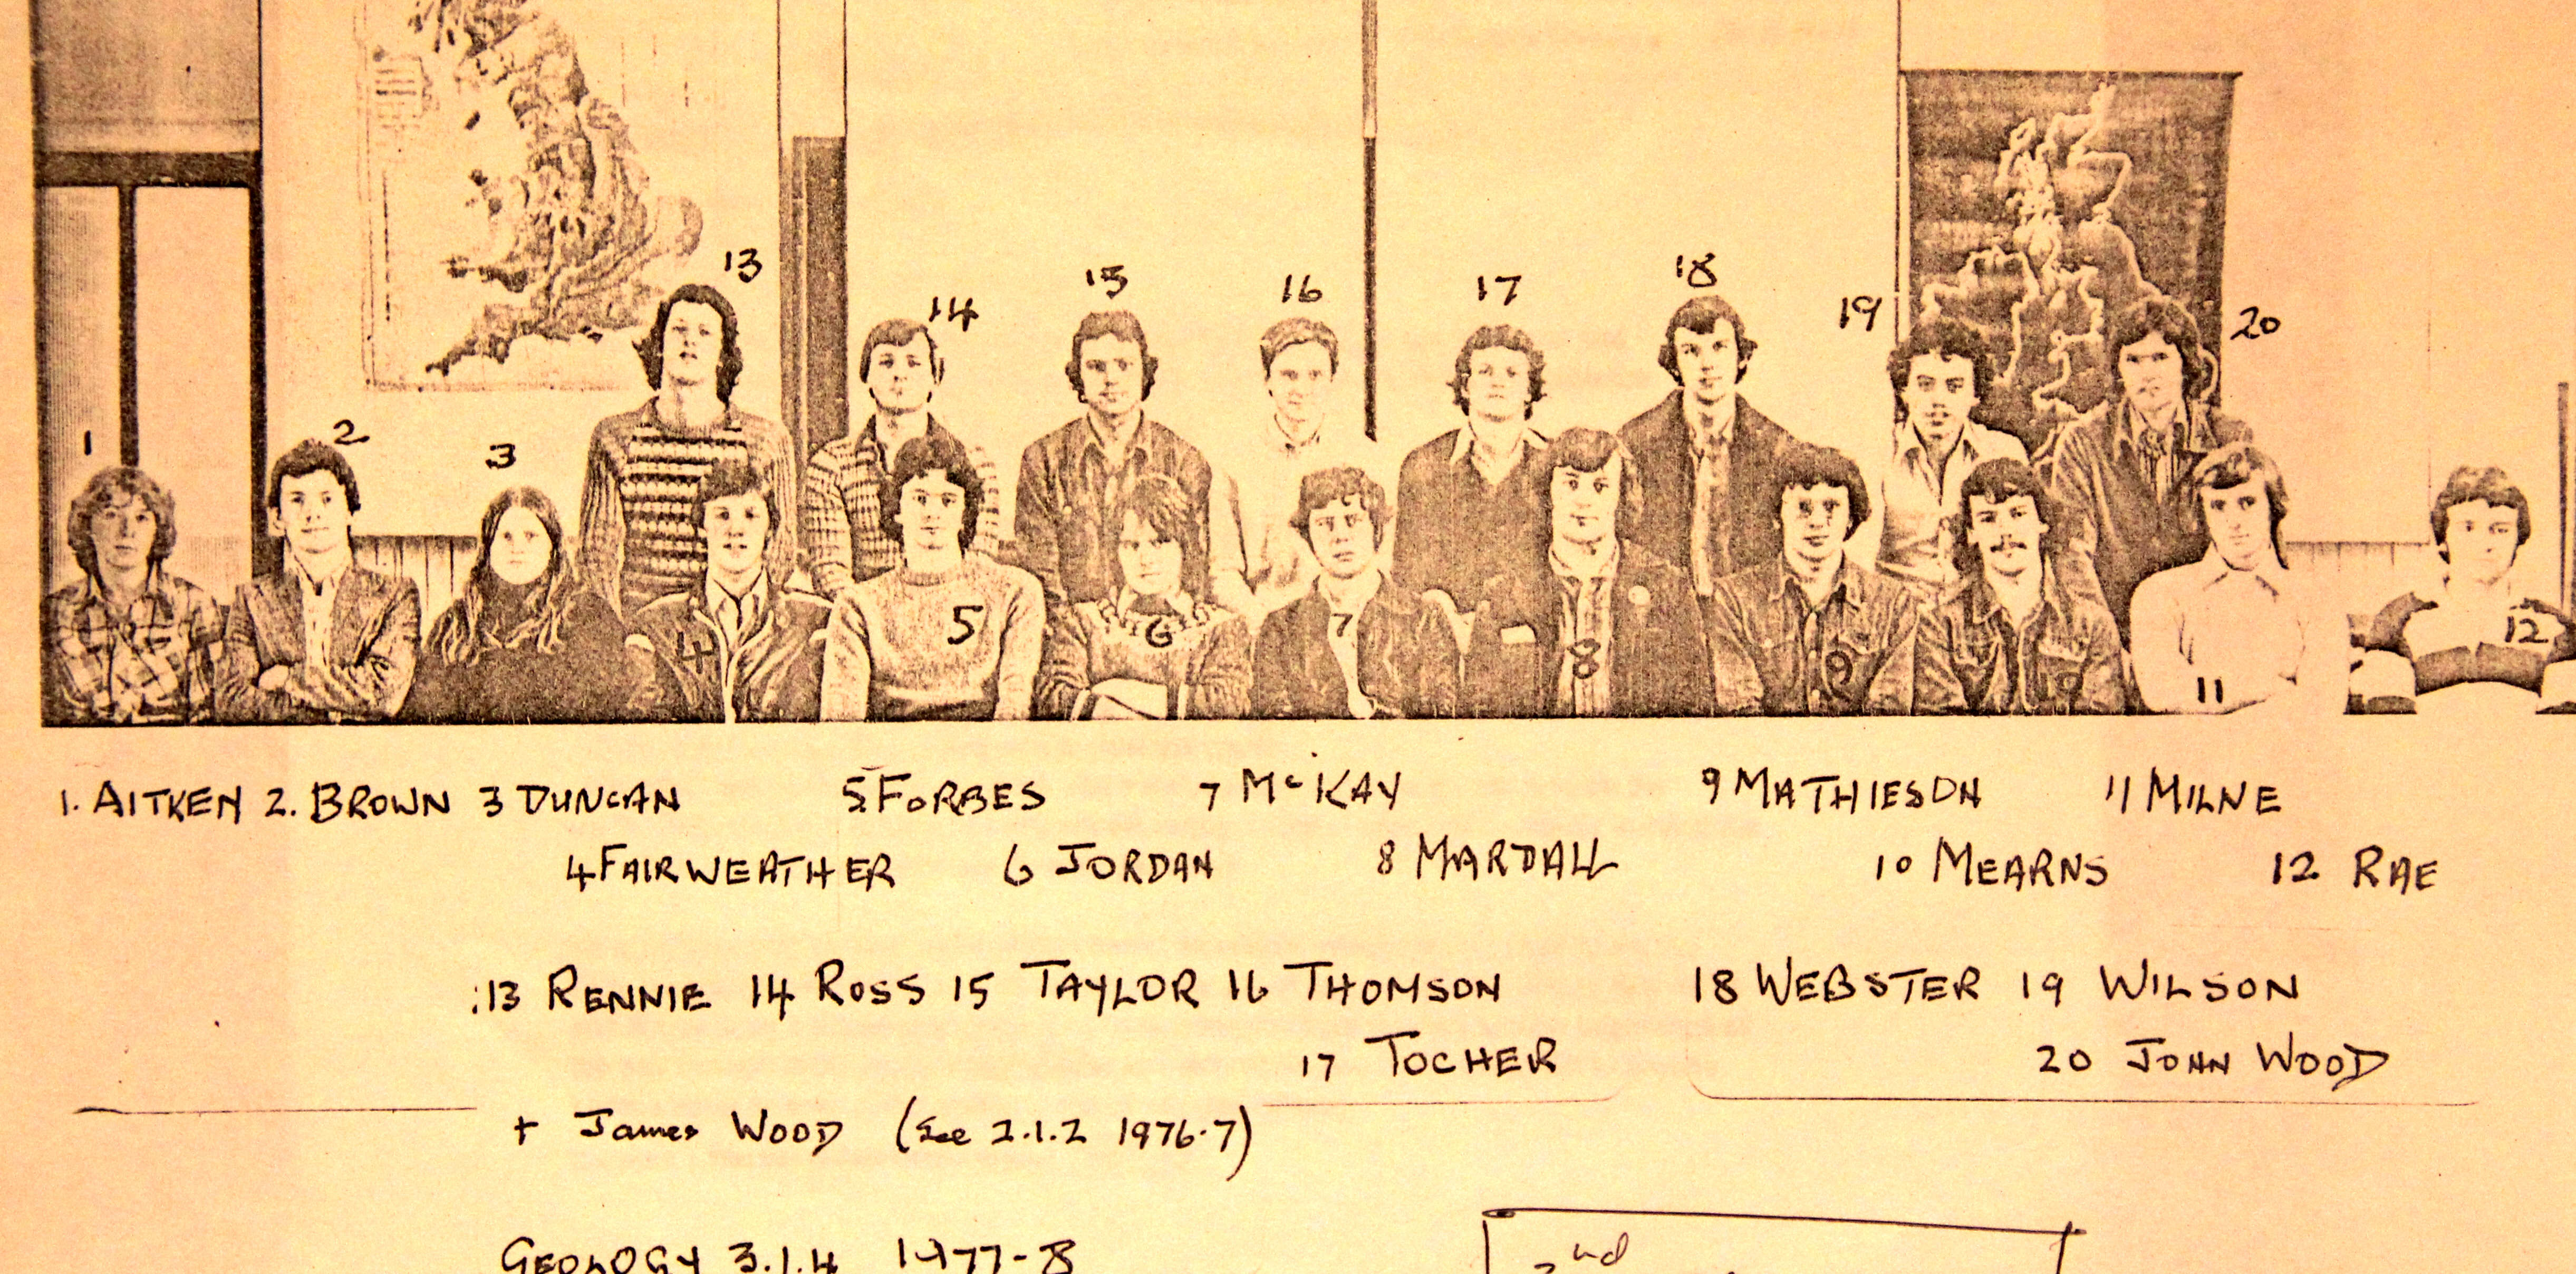 13
18
15
16
17
14
19
20
2
1
3
12
5
6
7
4
8
9
10
11
1. AITKEN 2. BROWN 3 DUNCAN 5 FORBES 7 McKAY 9 MATHIESON 11 MILNE
4 FAIRWEATHER 6 JORDAN 8 MARDALL 10 MEARNS 12 RAE
13 RENNIE 14 ROSS 15 TAYLOR 16 THOMSON 18 WEBSTER 19 WILSON
17 TOCHER 20 JOHN WOOD
+ James WOOD (See 2.1.2 1976-7)
GEOLOGY 3.1.4 1977-8
2nd